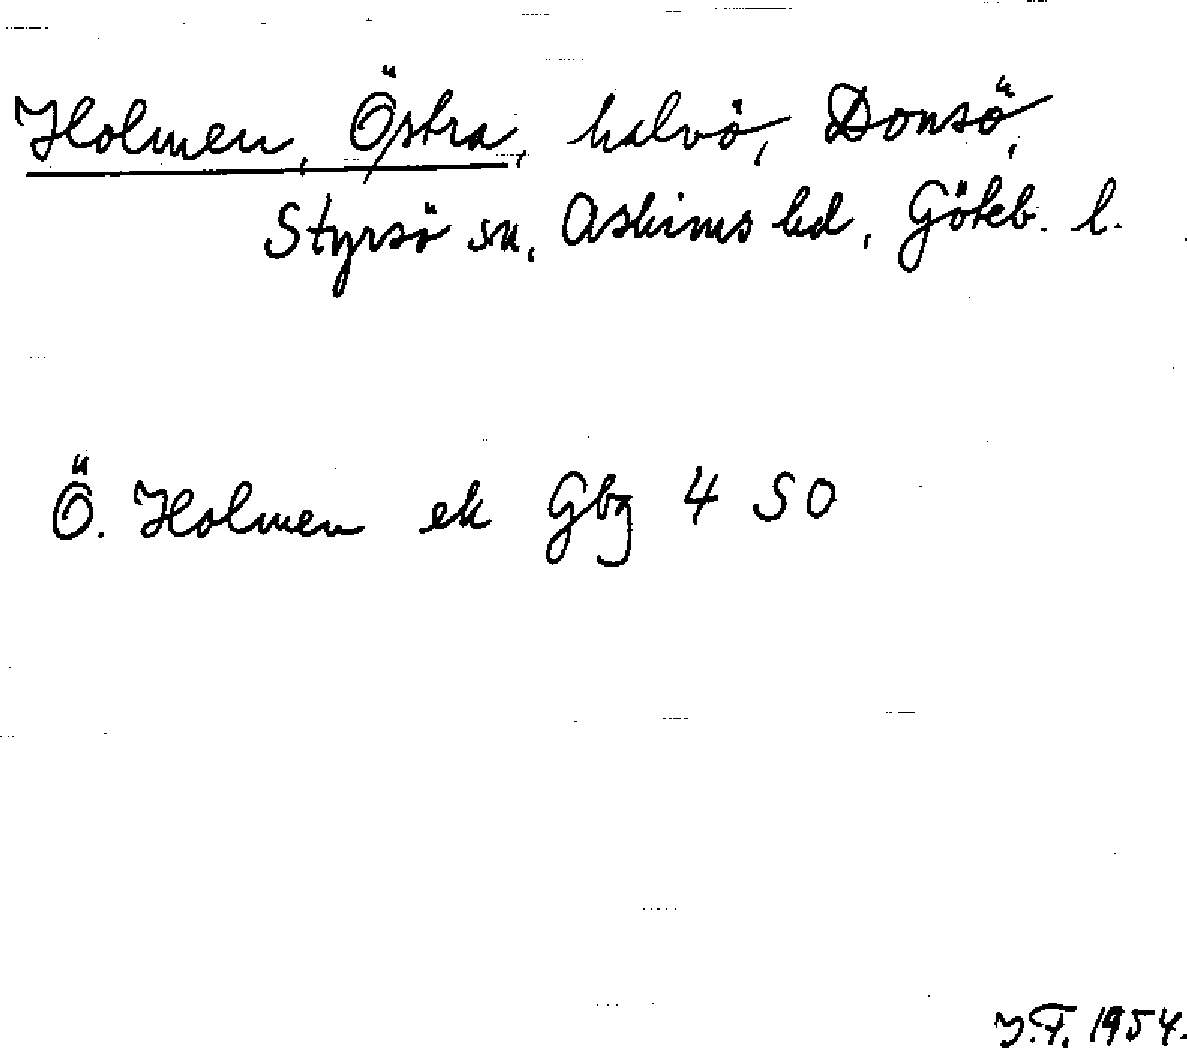 Holmen, Östra, halvö, Donsö,
Styrsö sn, Askims hd, Göteb. l.
Ö. Holmen ek Gbg 4 SO
J.F. 1954.